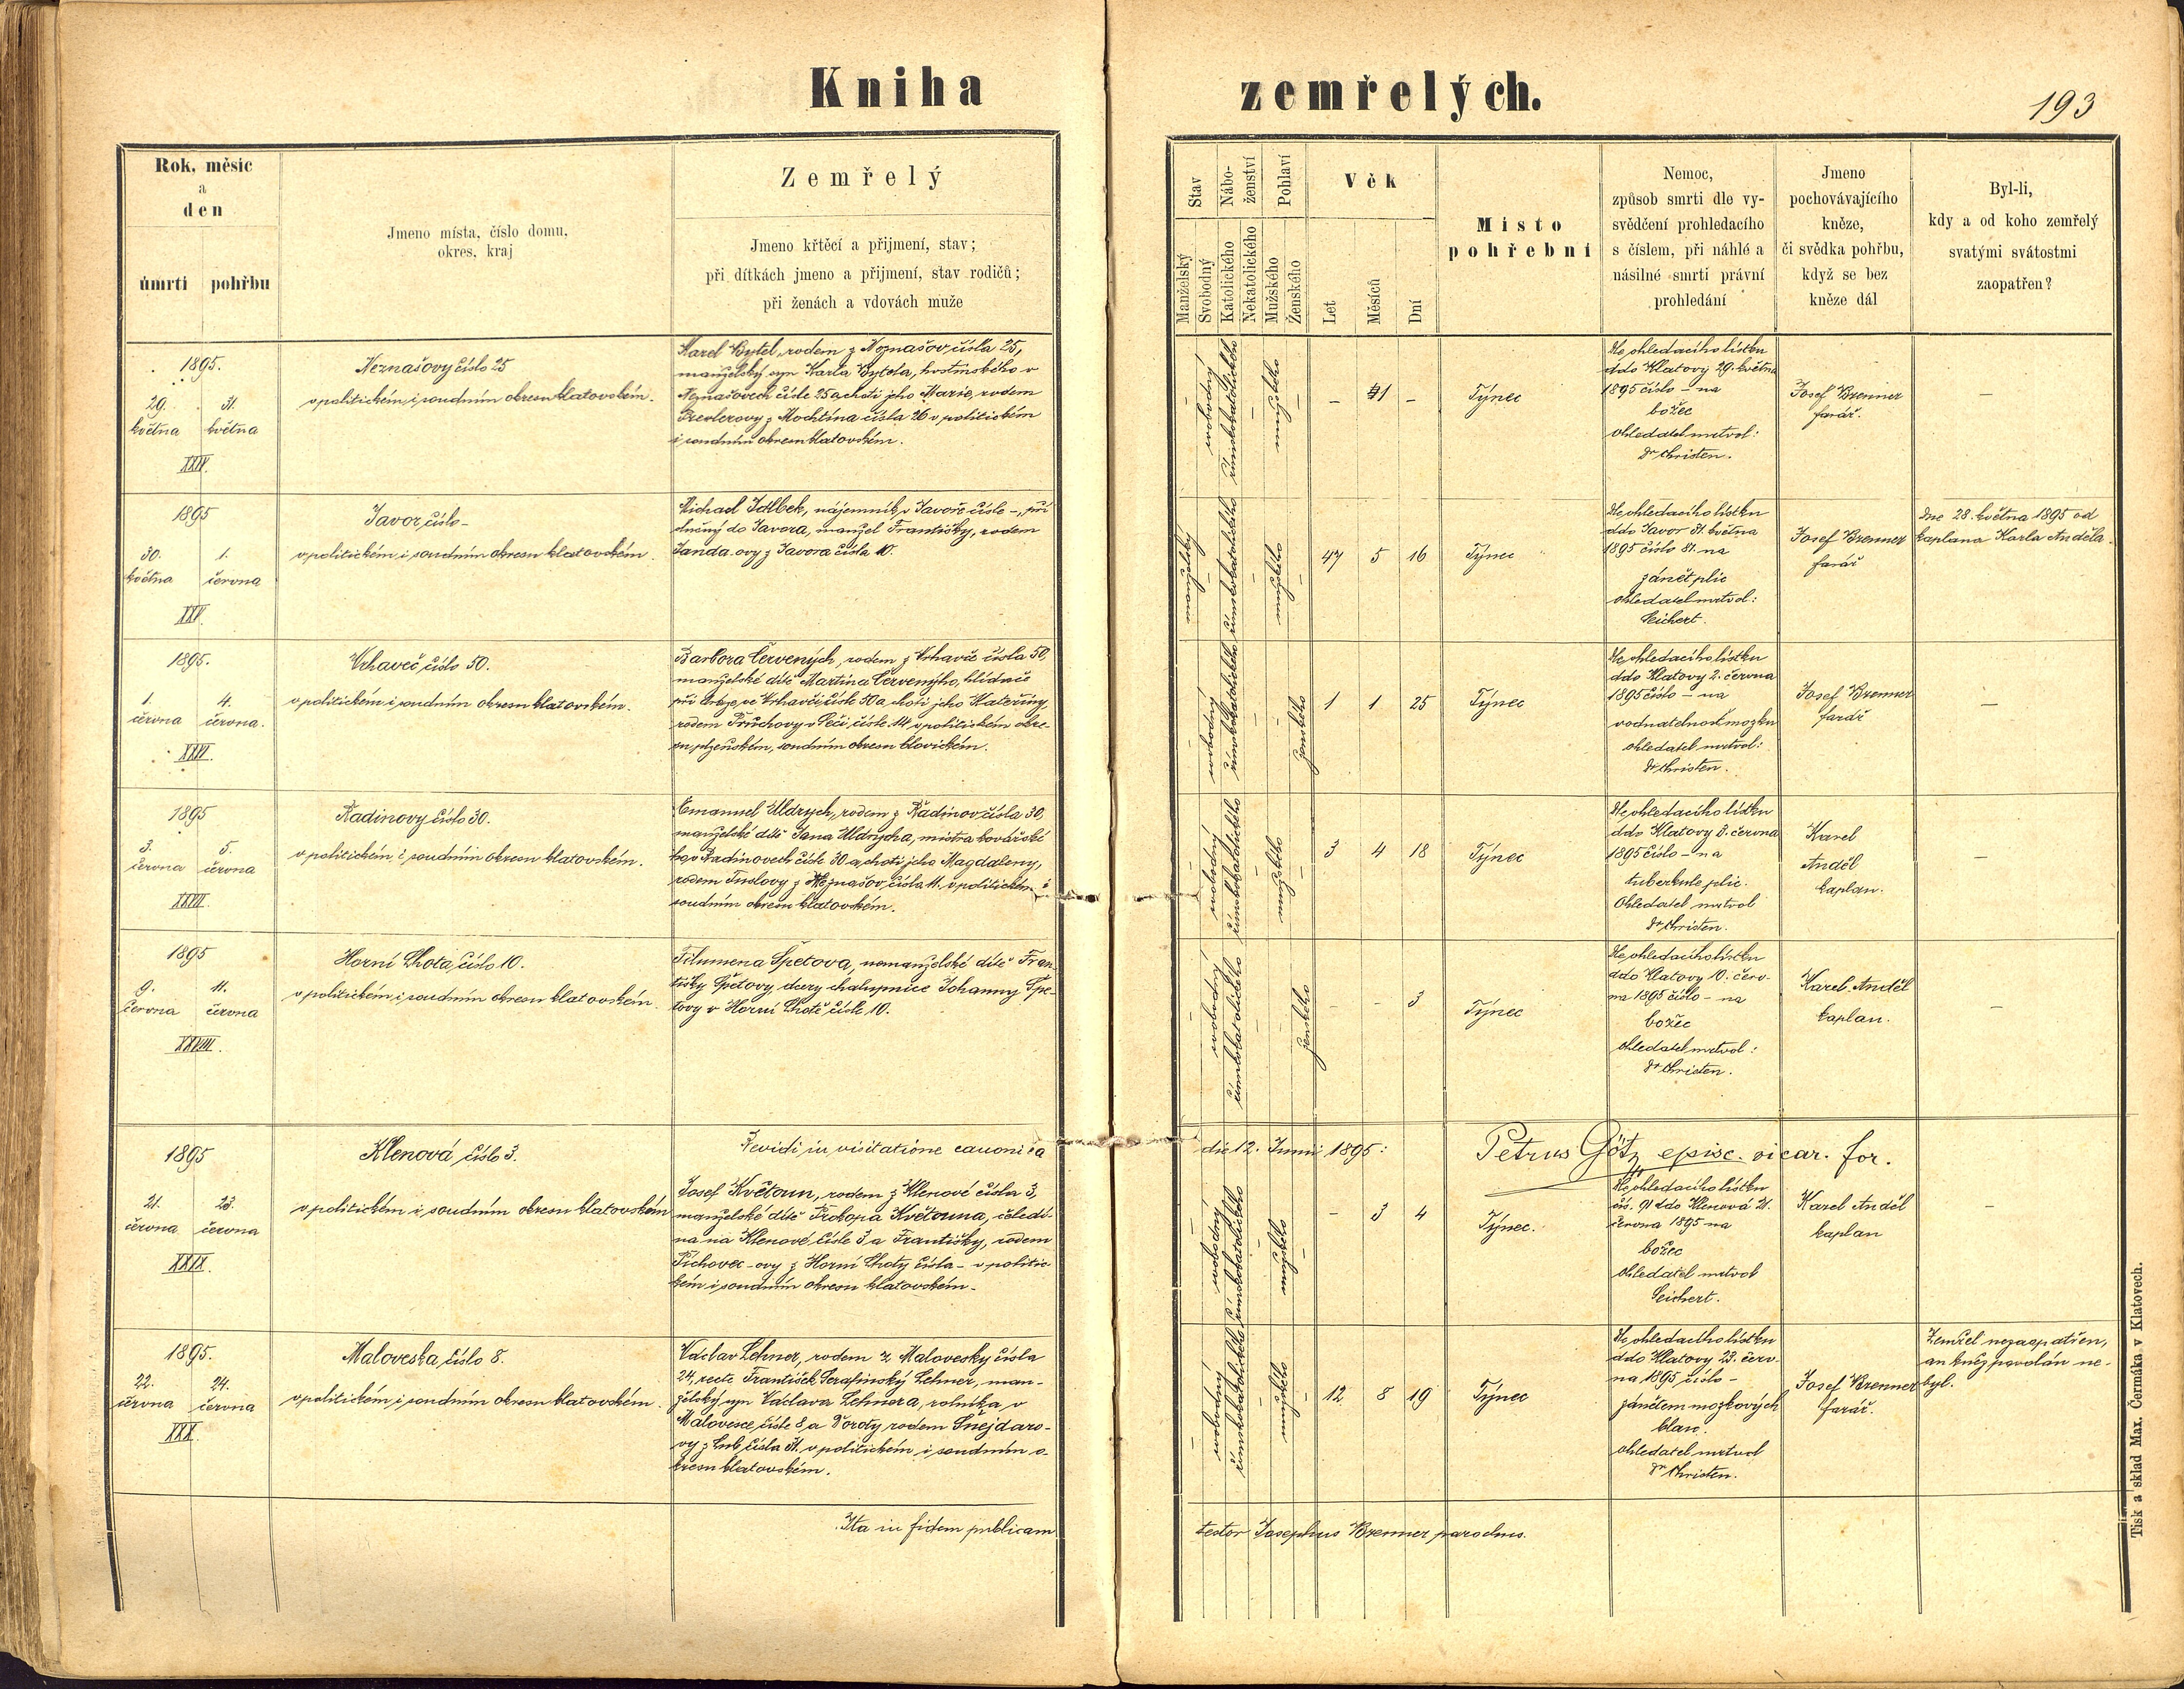 Kniha zemřelých.
193
Rok, měsíc
a
den
úmrtí pohřbu
Jmeno místa, číslo domu,
okres, kraj
Zemřelý
Jmeno křtěcí a přijmení, stav;
při dítkách jmeno a přijmení, stav rodičů;
při ženách a vdovách muže
Stav
Manželský
Svobodný
Nábo-
ženství
Katolického
Nekatolického
Pohlaví
Mužského
Ženského
Věk
Let
Měsíců
Dní
Místo
pohřební
Nemoc,
způsob smrti dle vy-
svědčení prohledacího
s číslem, při náhlé a
násilné smrti právní
prohledání
Jmeno
pochovávajícího
kněze,
či svědka pohřbu,
když se bez
kněze dál
Byl-li,
kdy a od koho zemřelý
svatými svátostmi
zaopatřen?
1895.
29. 31.
května května
XXIV.
Neznašovy číslo 25
v politickém i soudním okresu klatovském.
Karel Bytel, rodem z Neznašov čísla 25,
manželský syn Karla Bytela, hostinského v
Neznašovech čísle 25 a choti jeho Marie, rodem
z Mochtína čísla 26 v politickém
i soudním okresu klatovském.
–
svobodný
římskokatolického
–
mužského
–
– 1 –
Týnec
Dle ohledacího lístku
ddo Klatovy 29. května
1895 číslo – na
božec
ohledatel mrtvol:
Dr Christen.
Josef Brenner
farář.
–
1895
30. 1.
května června
XXV.
Javor, číslo –
v politickém i soudním okresu klatovském.
Michael Idlbek, nájemník v Javoře čísle –, pří
slušný do Javora, manžel Františky, rodem
Janda-ovy z Javora čísla 10.
manželský
–
římskokatolického
–
mužského
–
47 5 16
Týnec
Dle ohledacího lístku
ddo Javor 31. května
1895 číslo 81. na
zánět plic
ohledatel mrtvol:
Seichert.
Josef Brenner
farář
Dne 28. května 1895 od
kaplana Karla Anděla.
1895.
1. 4.
června června.
XXVI.
Vrhaveč, číslo 50.
v politickém i soudním okresu klatovském.
Barbora Červených, rodem z Vrhavče čísla 50,
manželské dítě Martina Červenýho, hlídače
při dráze, ve Vrhavči čísle 50 a choti jeho Kateřiny,
rodem Průchovy v Péči, čísle 14 v politickém okre-
su plzeňském, soudním okresu blovickém.
–
svobodný
římskokatolického
–
–
ženského
1 1 25
Týnec
Dle ohledacího lístku
ddo Klatovy 2. června
1895 číslo – na
vodnatelnost mozku
ohledatel mrtvol:
Dr Christen.
Josef Brenner
farář
–
1895
3. 5.
června června
XXVII.
Radinovy číslo 30.
v politickém i soudním okresu klatovském.
Emanuel Uldrych, rodem z Radinov čísla 30,
manželské dítě Jana Uldrycha, mistra kovářské
ho v Radinovech čísle 30 a choti jeho Magdaleny,
rodem Tuslovy z Neznašov, čísla 11. v politickém i
soudním okresu klatovském.
–
svobodný
římskokatolického
–
mužského
–
3 4 18
Týnec
Dle ohledacího lístku
ddo Klatovy 3. června
1895 číslo – na
tuberkule plic.
Ohledatel mrtvol
Dr Christen.
Karel
Anděl
kaplan.
–
1895
9. 11.
června června
XXVIII.
Horní Lhota, číslo 10.
v politickém i soudním okresu klatovském.
Filumena Špetova, nemanželské dítě Fran-
tišky Špetovy dcery chalupnice Johanny Špe-
tovy v Horní Lhotě čísle 10.
–
svobodný
římskokatolického
–
–
ženského
– – 3
Týnec
Dle ohledacího lístku
ddo Klatovy 10. červ-
na 1895 číslo – na
božec
ohledatel mrtvol:
Dr Christen.
Karel Anděl
kaplan.
–
Revidi in visitatione canonica die 12. Junii 1895: Petrus Götz episc. vicar. for.
1895
21. 23.
června června
XXIX.
Klenová číslo 3.
v politickém i soudním okresu klatovském
Josef Květoun, rodem z Klenové čísla 3,
manželské dítě Prokopa Květouna, čeledí-
na na Klenové, čísle 3 a Františky, rodem
Tichovec-ovy z Horní Lhoty čísla – v politic
kém i soudním okresu klatovském.
–
svobodný
římskokatolického
–
mužského
–
– 3 4
Týnec.
Dle ohledacího lístku
čís. 91 ddo Klenová 21.
června 1895 na
božec
ohledatel mrtvol
Seichert.
Karel Anděl
kaplan
–
1895.
22. 24.
června června
XXX.
Maloveska, číslo 8.
v politickém i soudním okresu klatovském.
Václav Lehner, rodem z Malovesky čísla
24, recte František Serafinský Lehner, man-
želský syn Václava Lehnera, rolníka v
Malovesce, čísle 8, a Doroty rodem Šnejdaro-
vy z Lub, čísla 31. v politickém i soudním o-
kresu klatovském.
–
svobodný
římskokatolického
–
mužského
–
12 8 19
Týnec
Dle ohledacího lístku
ddo Klatovy 23. červ-
na 1895 číslo –
zánětem mozkových
blan.
ohledatel mrtvol
Dr Christen.
Josef Brenner
farář.
Zemřel nezaopatřen,
an kněz povolán ne-
byl.
Ita in fidem publicam testor Josephus Brenner parochus.
Tisk a sklad Max. Čermáka v Klatovech.